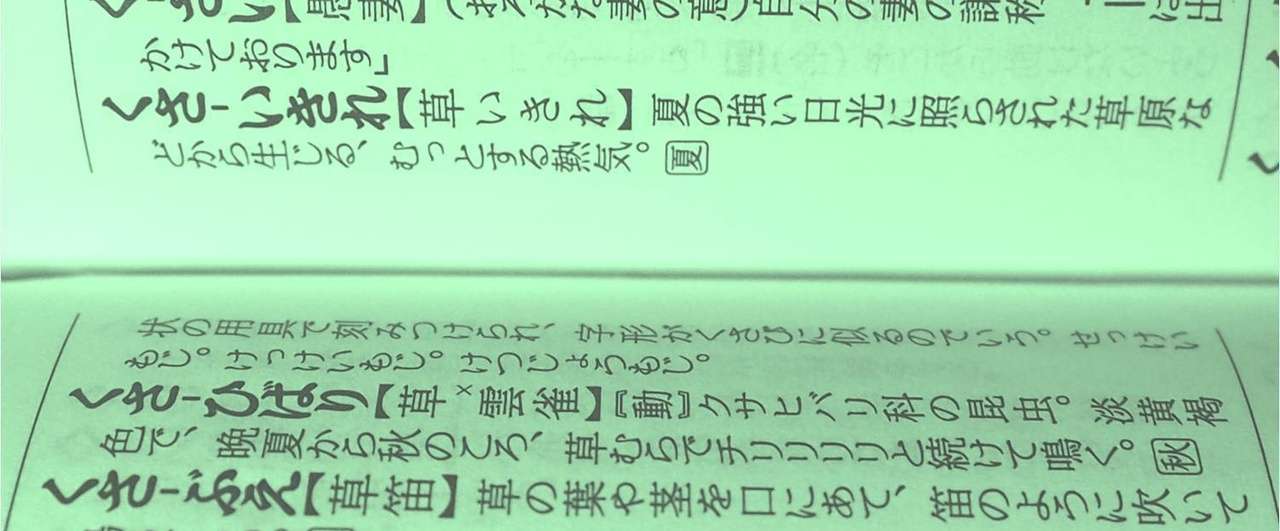 ぐ-さい【愚妻】(おろかな妻の意)自分の妻の謙称。「—は出
かけております」
くさ-いきれ【草いきれ】夏の強い日光に照らされた草原な
どから生じる、むっとする熱気。夏
状の用具で刻みつけられ、字形がくさびに似るのでいう。せっけい
もじ。けっけいもじ。けつじょうもじ。
くさ-ひばり【草×雲雀】〘動〙クサヒバリ科の昆虫。淡黄褐
色で、晩夏から秋のころ、草むらでチリリリリと続けて鳴く。秋
くさ-ぶえ【草笛】草の葉や茎を口にあて、笛のように吹いて